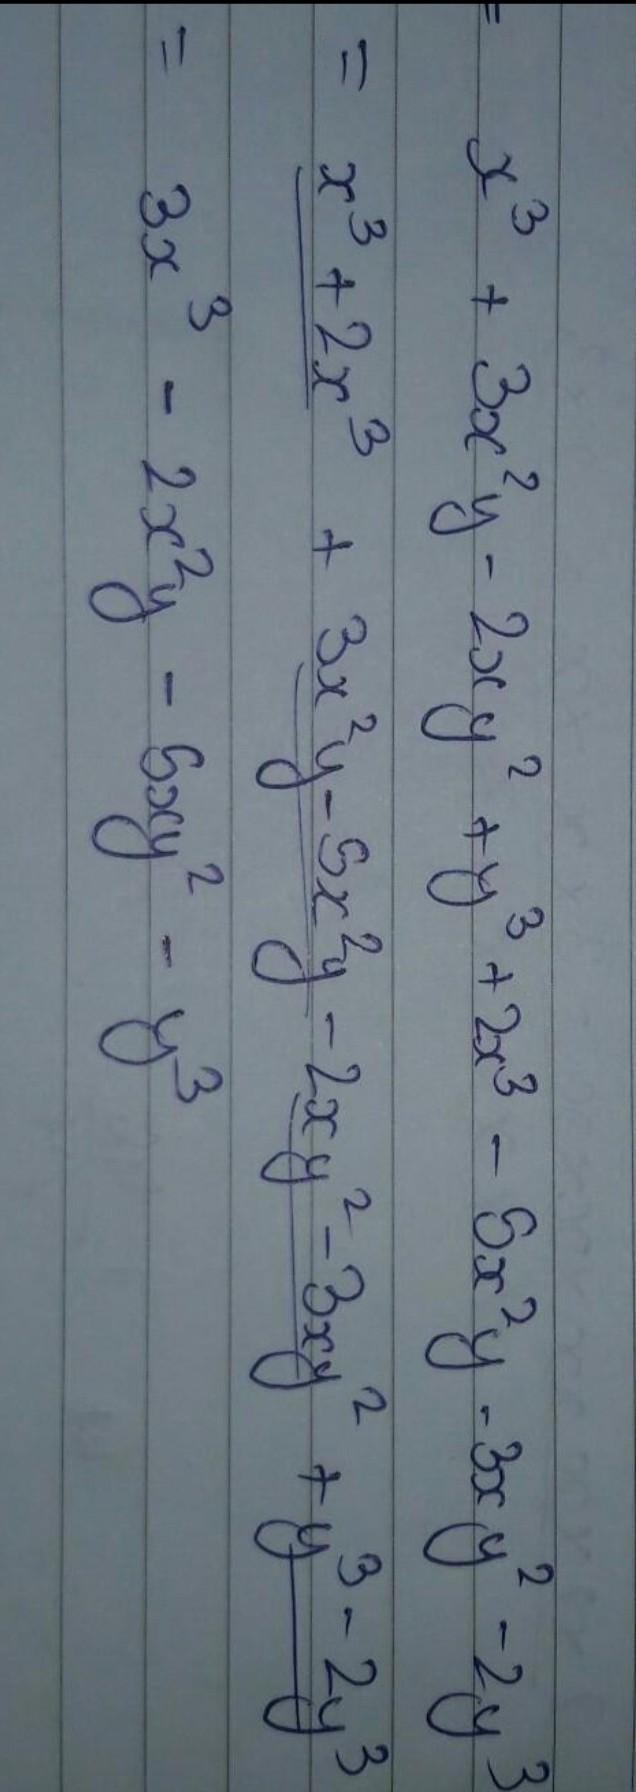 = x³ + 3x²y - 2xy² + y³ + 2x³ - 5x²y - 3xy² - 2y³
= x³ + 2x³ + 3x²y - 5x²y - 2xy² - 3xy² + y³ - 2y³
= 3x³ - 2x²y - 5xy² - y³